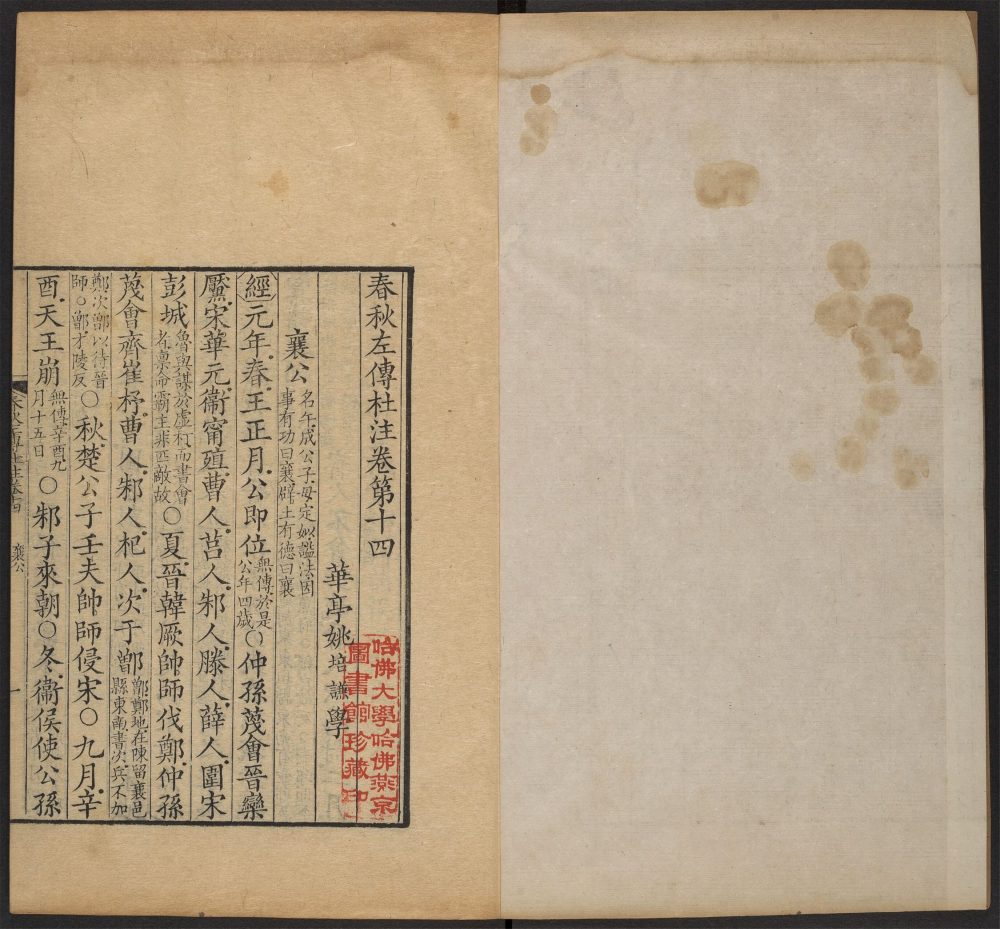 春秋左傳杜注卷第十四
華亭姚培謙學
哈佛大學哈佛燕京
圖書館珍藏印
襄公 名午成公子母定姒諡法因事有功曰襄辟土有德曰襄
經元年春王正月公即位 無傳於是公年四歲 ○仲孫蔑會晉欒
黶宋華元衞甯殖曹人莒人邾人滕人薛人圍宋
彭城 魯與謀於虛朾而書會者稟命霸主非匹敵故 ○夏晉韓厥帥師伐鄭仲孫
蔑會齊崔杼曹人邾人杞人次于鄫 鄫鄭地在陳留襄邑縣東南書次兵不加
鄭次鄫以待晉師○鄫才陵反 ○秋楚公子壬夫帥師侵宋○九月辛
酉天王崩 無傳辛酉九月十五日 ○邾子來朝○冬衞侯使公孫
襄公
一